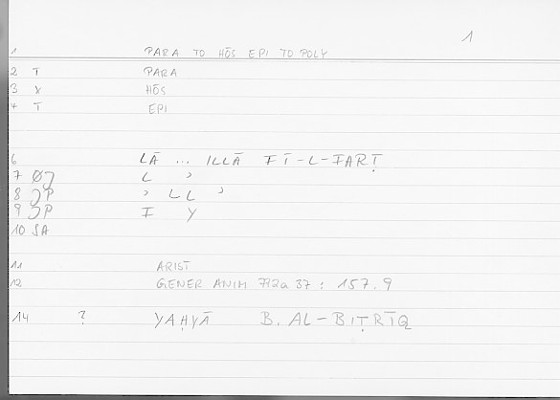 1
1 PARA TO HŌS EPI TO POLY
2 T PARA
3 X HŌS
4 T EPI
6 LĀ ... ILLĀ FĪ-L-FARṬ
7 L ʾ
8 P ʾ LL ʾ
9 P I Y
10 SA
11 ARIST
12 GENER ANIM 772a 37 : 157.9
14 ? YAḤYĀ B. AL-BIṬRĪQ